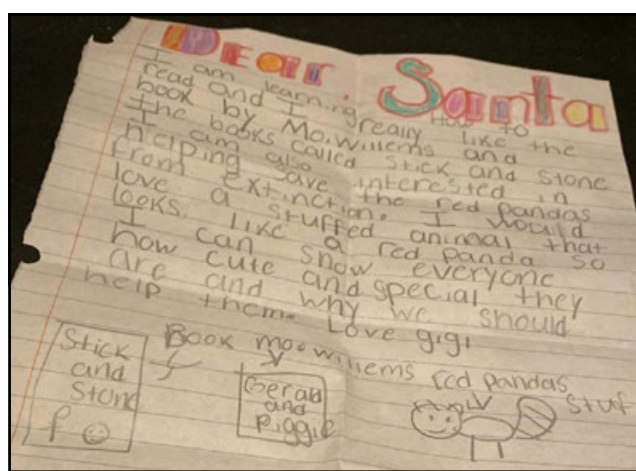 Dear. Santa
I am learning How to
read and I really like the
book by Mo.Willems and
the books called Stick and Stone
I am also interested in
helping save the red pandas
from extinction. I would
love a stuffed animal that
looks. like a red panda so
I can show everyone
how cute and special they
are and why we should
help them. Love gigi
Book mo.willems red pandas
Stick
and
Stone
Gerald
and
Piggie
stuf